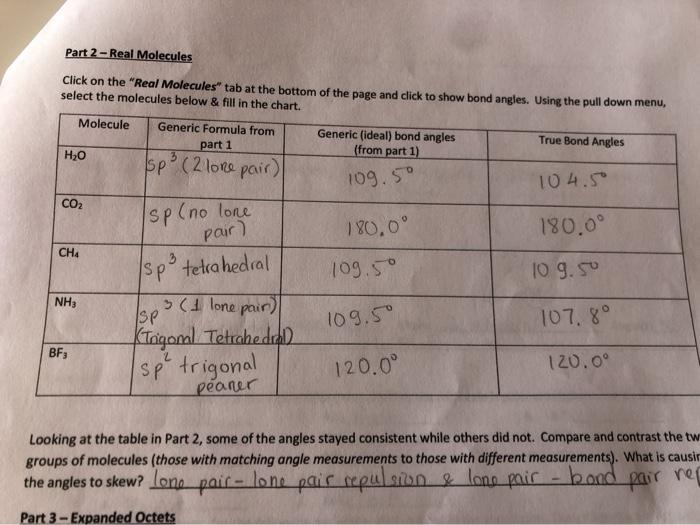 Part 2 – Real Molecules
Click on the "Real Molecules" tab at the bottom of the page and click to show bond angles. Using the pull down menu,
select the molecules below & fill in the chart.
Molecule
Generic Formula from
part 1
Generic (ideal) bond angles
(from part 1)
True Bond Angles
H₂O
sp³ (2 lone pair)
109.5°
104.5°
CO₂
sp (no lone
pair)
180.0°
180.0°
CH₄
sp³ tetrahedral
109.5°
109.5°
NH₃
sp³ (1 lone pair)
(Trigoml Tetrahedral)
109.5°
107.8°
BF₃
sp² trigonal
peaner
120.0°
120.0°
Looking at the table in Part 2, some of the angles stayed consistent while others did not. Compare and contrast the tw
groups of molecules (those with matching angle measurements to those with different measurements). What is causin
the angles to skew? lone pair - lone pair repulsion & lone pair - bond pair rep
Part 3 – Expanded Octets